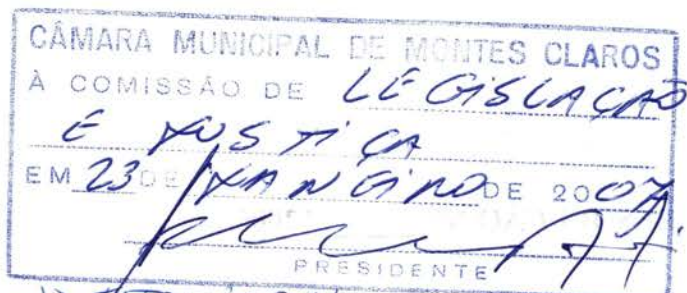 CÂMARA MUNICIPAL DE MONTES CLAROS
À COMISSÃO DE LEGISLAÇÃO
E JUSTIÇA
EM 23 DE JANEIRO DE 2007
PRESIDENTE